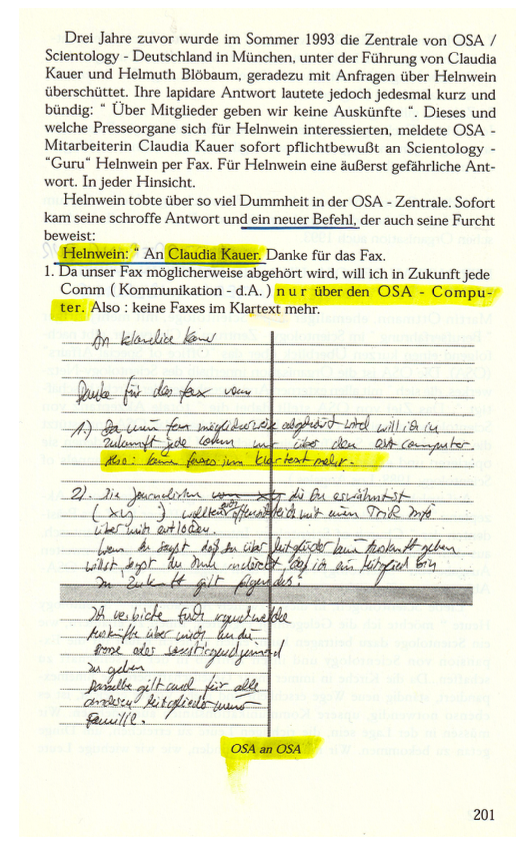 Drei Jahre zuvor wurde im Sommer 1993 die Zentrale von OSA /
Scientology - Deutschland in München, unter der Führung von Claudia
Kauer und Helmuth Blöbaum, geradezu mit Anfragen über Helnwein
überschüttet. Ihre lapidare Antwort lautete jedoch jedesmal kurz und
bündig: “ Über Mitglieder geben wir keine Auskünfte “. Dieses und
welche Presseorgane sich für Helnwein interessierten, meldete OSA -
Mitarbeiterin Claudia Kauer sofort pflichtbewußt an Scientology -
"Guru" Helnwein per Fax. Für Helnwein eine äußerst gefährliche Ant-
wort. In jeder Hinsicht.
Helnwein tobte über so viel Dummheit in der OSA - Zentrale. Sofort
kam seine schroffe Antwort und ein neuer Befehl, der auch seine Furcht
beweist:
Helnwein: “ An Claudia Kauer. Danke für das Fax.
1. Da unser Fax möglicherweise abgehört wird, will ich in Zukunft jede
Comm ( Kommunikation - d.A.) nur über den OSA - Compu-
ter. Also : keine Faxes im Klartext mehr.
An
Danke für das fax vom
1.) Da unser fax möglicherweise abgehört wird will ich in
Zukunft jede comm nur über den OSA computer
Also: keine faxes im klartext mehr.
2). Die Journalisten die Du erwähntest
( xy ) wollten mit einem Info
über mich
Wenn Du sagst daß Du über Mitglieder keine Auskunft geben
willst sagst Du damit indirekt, daß ich ein Mitglied bin
In Zukunft gilt folgendes:
Ich verbiete Euch irgendwelche
Auskünfte über mich an die
Presse oder sonst irgendjemand
zu geben
Dasselbe gilt auch für alle
anderen Mitglieder meiner
Familie.
OSA an OSA
201